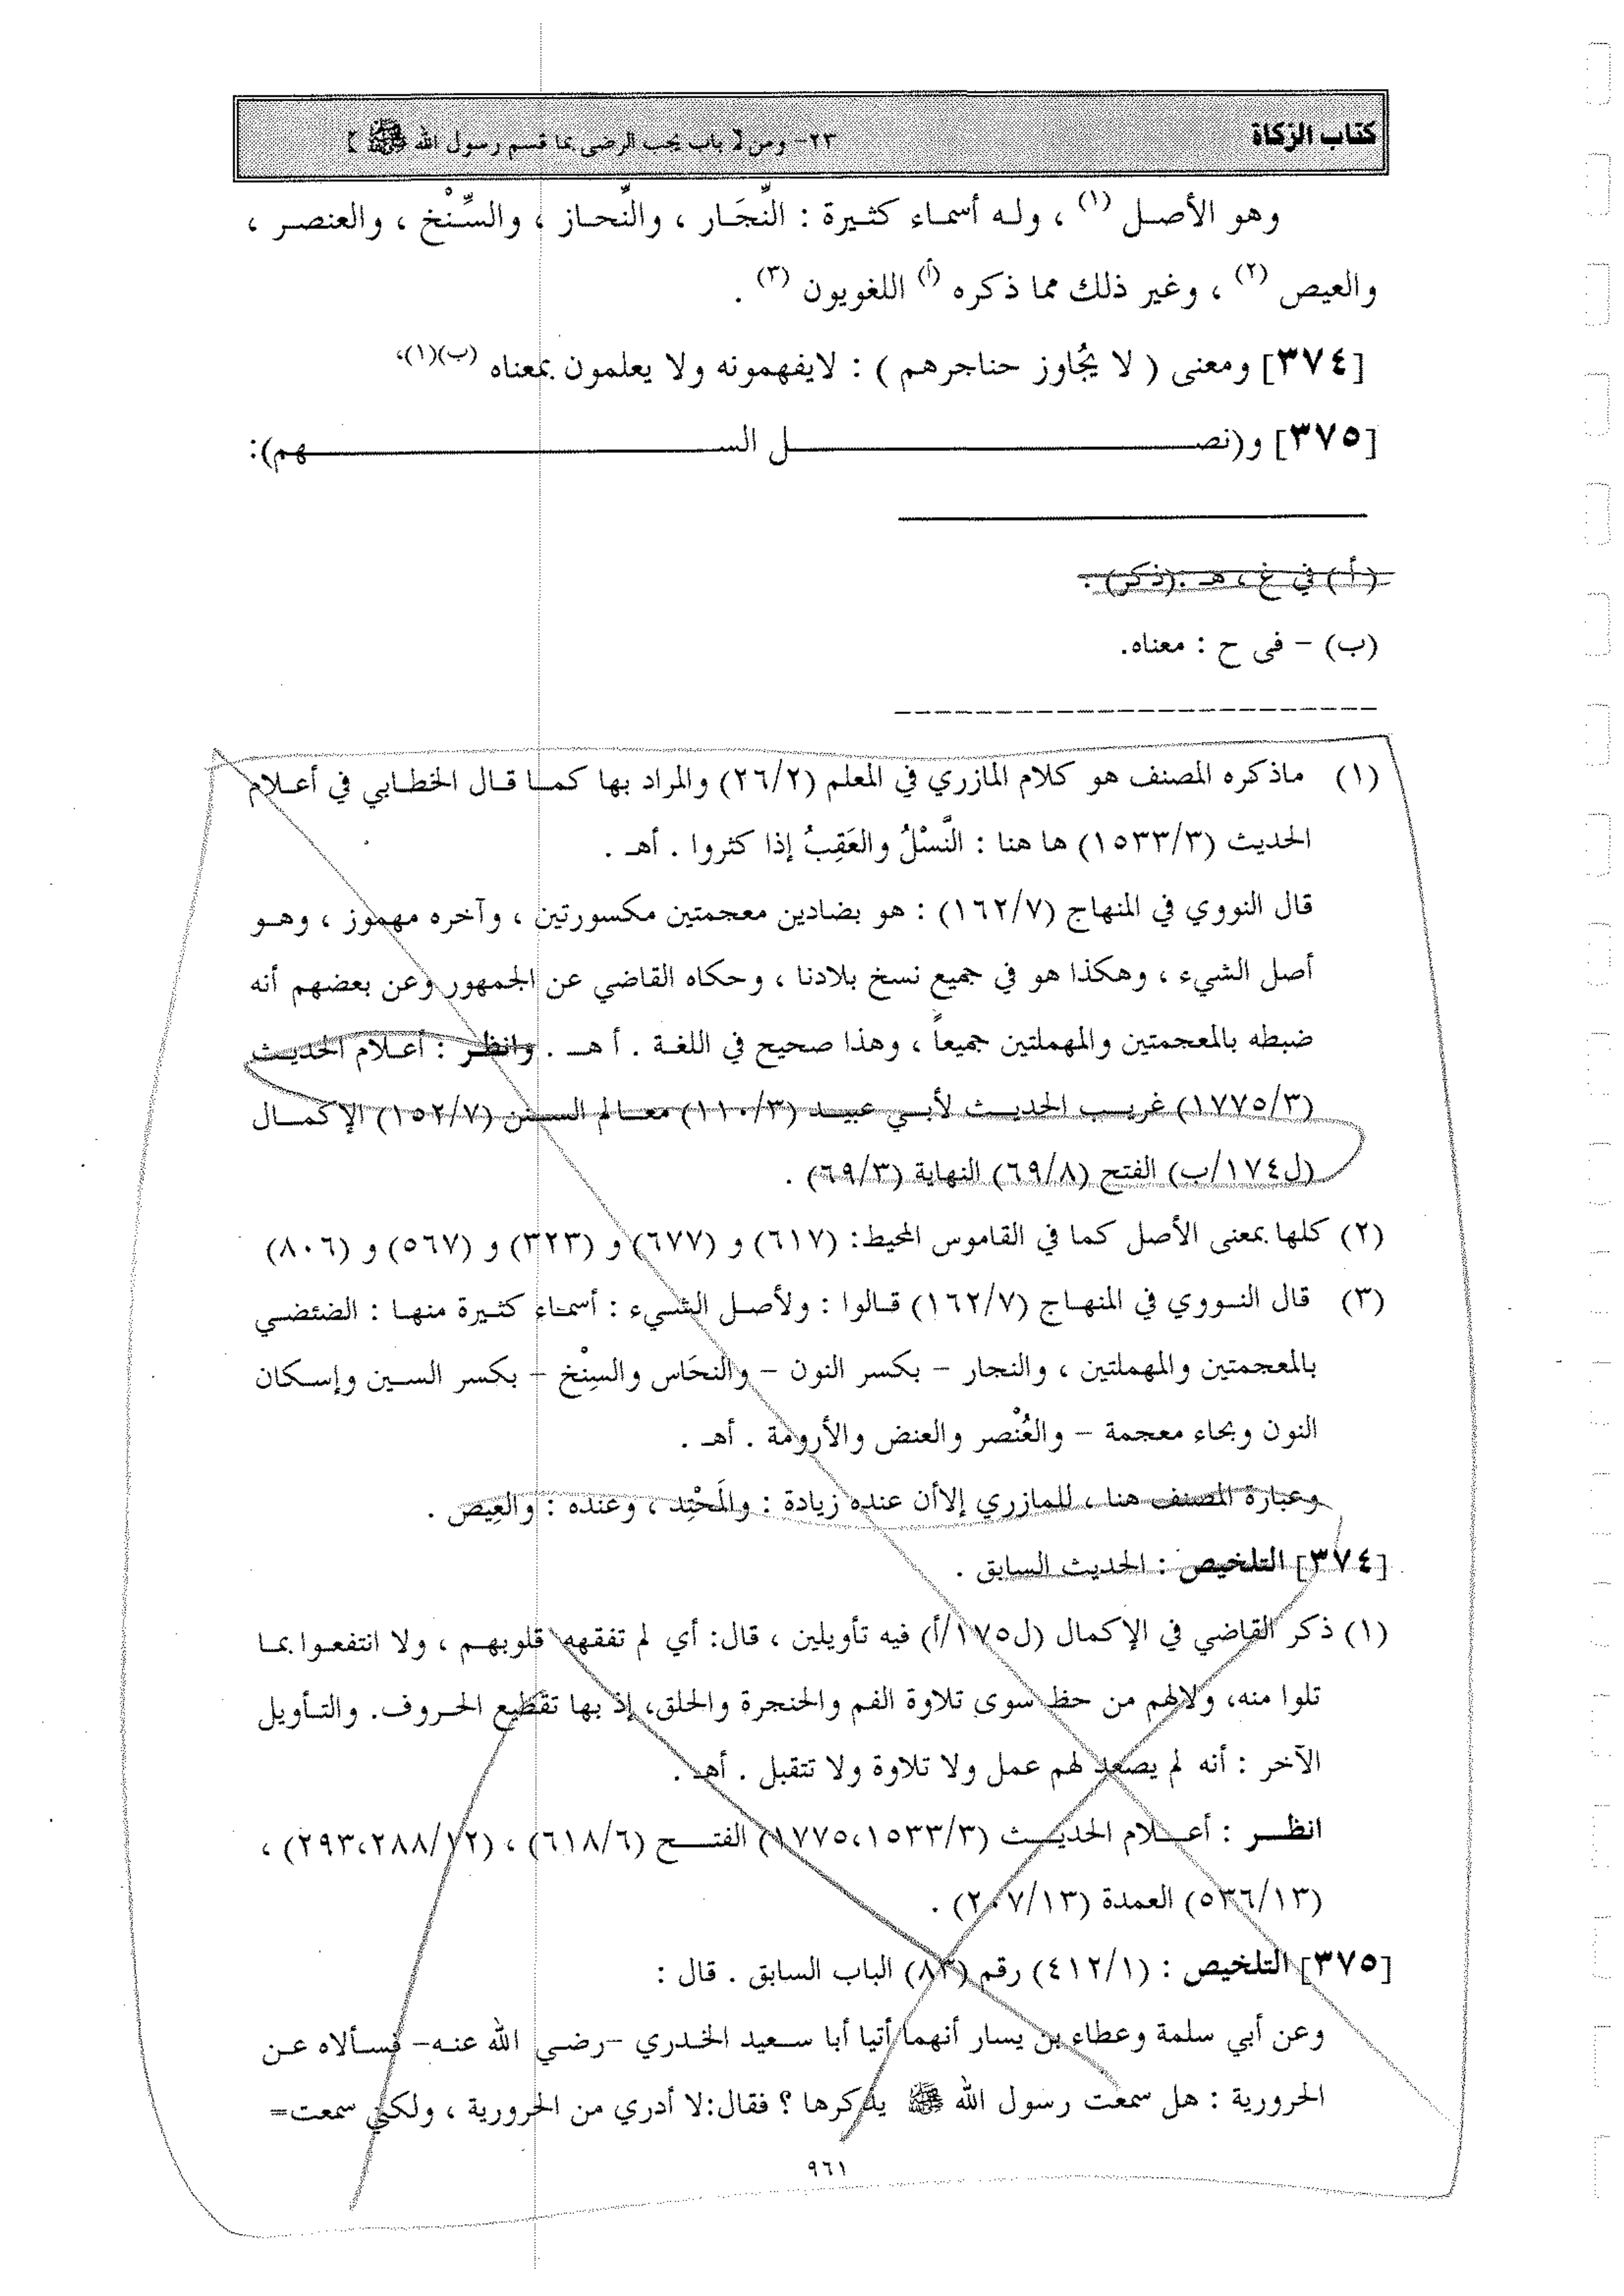 كتاب الزكاة
٢٣- ومن لا باب يجب الرضى بما قسم رسول الله ﷺ ]
وهو الأصل (١) ، وله أسماء كثيرة : النِّجَار ، والنِّحاز ، والسِّنْخ ، والعنصر ،
والعيص (٢) ، وغير ذلك مما ذكره (أ) اللغويون (٣) .
[٣٧٤] ومعنى ( لا يُجاوز حناجرهم ) : لايفهمونه ولا يعلمون بمعناه (ب)(١)،
[٣٧٥] و(نصـل السـهم):
(أ) في غ ، هـ .(ذكر) .
(ب) – فى ح : معناه.
(١) ماذكره المصنف هو كلام المازري في المعلم (٢٦/٢) والمراد بها كما قال الخطابي في أعلام
الحديث (١٥٣٣/٣) ها هنا : النَّسْلُ والعَقِبُ إذا كثروا . أهـ .
قال النووي في المنهاج (١٦٢/٧) : هو بضادين معجمتين مكسورتين ، وآخره مهموز ، وهو
أصل الشيء ، وهكذا هو في جميع نسخ بلادنا ، وحكاه القاضي عن الجمهور وعن بعضهم أنه
ضبطه بالمعجمتين والمهملتين جميعاً ، وهذا صحيح في اللغة . أ هـ . وانظر : أعلام الحديث
(١٧٧٥/٣) غريب الحديث لأبي عبيد (١١٠/٣) معالم السنن (١٥٢/٧) الإكمال
(ل١٧٤/ب) الفتح (٦٩/٨) النهاية (٦٩/٣) .
(٢) كلها بمعنى الأصل كما في القاموس المحيط: (٦١٧) و (٦٧٧) و (٣٢٣) و (٥٦٧) و (٨٠٦)
(٣) قال النووي في المنهاج (١٦٢/٧) قالوا : ولأصل الشيء : أسماء كثيرة منها : الضئضي
بالمعجمتين والمهملتين ، والنجار – بكسر النون – والنحَاس والسِنْخ – بكسر السين وإسكان
النون وبخاء معجمة – والعُنْصر والعنض والأرومة . أهـ .
وعبارة المصنف هنا ، للمازري إلاأن عنده زيادة : والمَحْتِد ، وعنده : والعِيص .
[٣٧٤] التلخيص : الحديث السابق .
(١) ذكر القاضي في الإكمال (ل١٧٥/أ) فيه تأويلين ، قال: أي لم تفقهه قلوبهم ، ولا انتفعوا بما
تلوا منه، ولالهم من حظ سوى تلاوة الفم والحنجرة والحلق، إذ بها تقطيع الحروف. والتأويل
الآخر : أنه لم يصعد لهم عمل ولا تلاوة ولا تتقبل . أهـ .
انظر : أعلام الحديث (١٧٧٥،١٥٣٣/٣) الفتح (٦١٨/٦) ، (٢٩٣،٢٨٨/١٢) ،
(٥٣٦/١٣) العمدة (٢٠٧/١٣) .
[٣٧٥] التلخيص : (٤١٢/١) رقم (٨٣) الباب السابق . قال :
وعن أبي سلمة وعطاء بن يسار أنهما أتيا أبا سعيد الخدري –رضي الله عنه– فسألاه عن
الحرورية : هل سمعت رسول الله ﷺ يذكرها ؟ فقال:لا أدري من الحرورية ، ولكني سمعت=
٩٦١